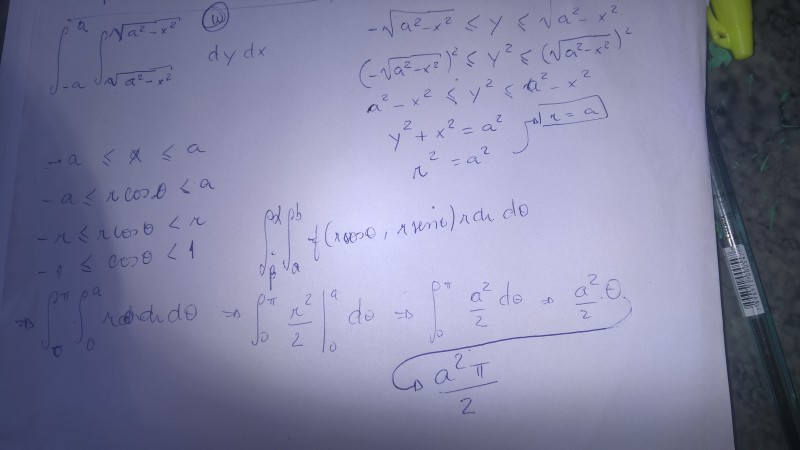 (w)
∫_{-a}^{a} ∫_{√(a²-x²)}^{√(a²-x²)} dy dx
-√(a²-x²) ≤ y ≤ √(a²-x²)
(-√(a²-x²))² ≤ y² ≤ (√(a²-x²))²
a²-x² ≤ y² ≤ a²-x²
y² + x² = a²
r² = a² → r = a
-a ≤ x ≤ a
-a ≤ r cosθ ≤ a
-r ≤ r cosθ < r
-1 ≤ cosθ < 1
∫_β^α ∫_a^b f(r cosθ, r sinθ) r dr dθ
⇒ ∫_0^π ∫_0^a r dr dθ ⇒ ∫_0^π r²/2 |_0^a dθ ⇒ ∫_0^π a²/2 dθ ⇒ a²/2 · θ
→ a²π/2